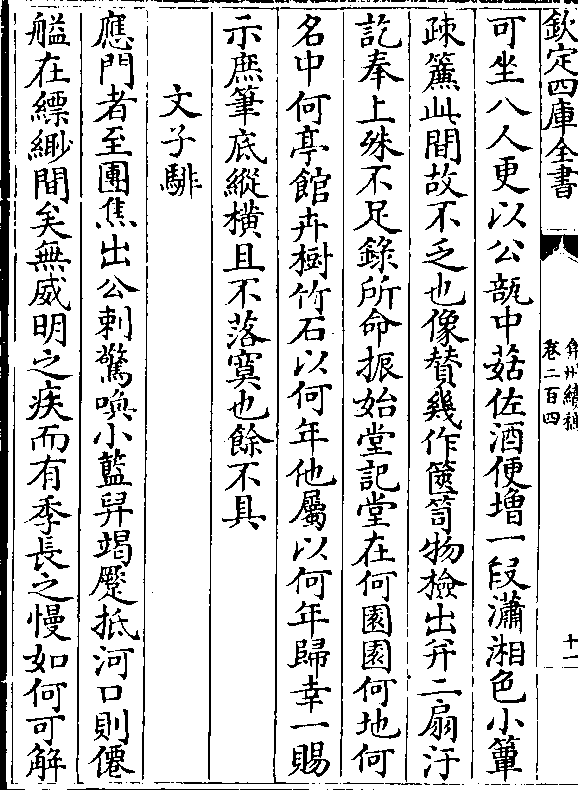 欽定四庫全書
弇州續稿
卷二百四
十一
可坐八人更以公瓿中菇佐酒便增一段瀟湘色小簟
疎簾此間故不乏也像賛幾作篋笥物檢出并二扇汙
訖奉上殊不足錄所命振始堂記堂在何園園何地何
名中何亭館卉樹竹石以何年他屬以何年歸幸一賜
示庶筆底縱橫且不落寞也餘不具
文子騑
應門者至團焦出公刺驚喚小藍舁竭蹷抵河口則僊
艗在縹緲間矣無威明之疾而有季長之慢如何可解